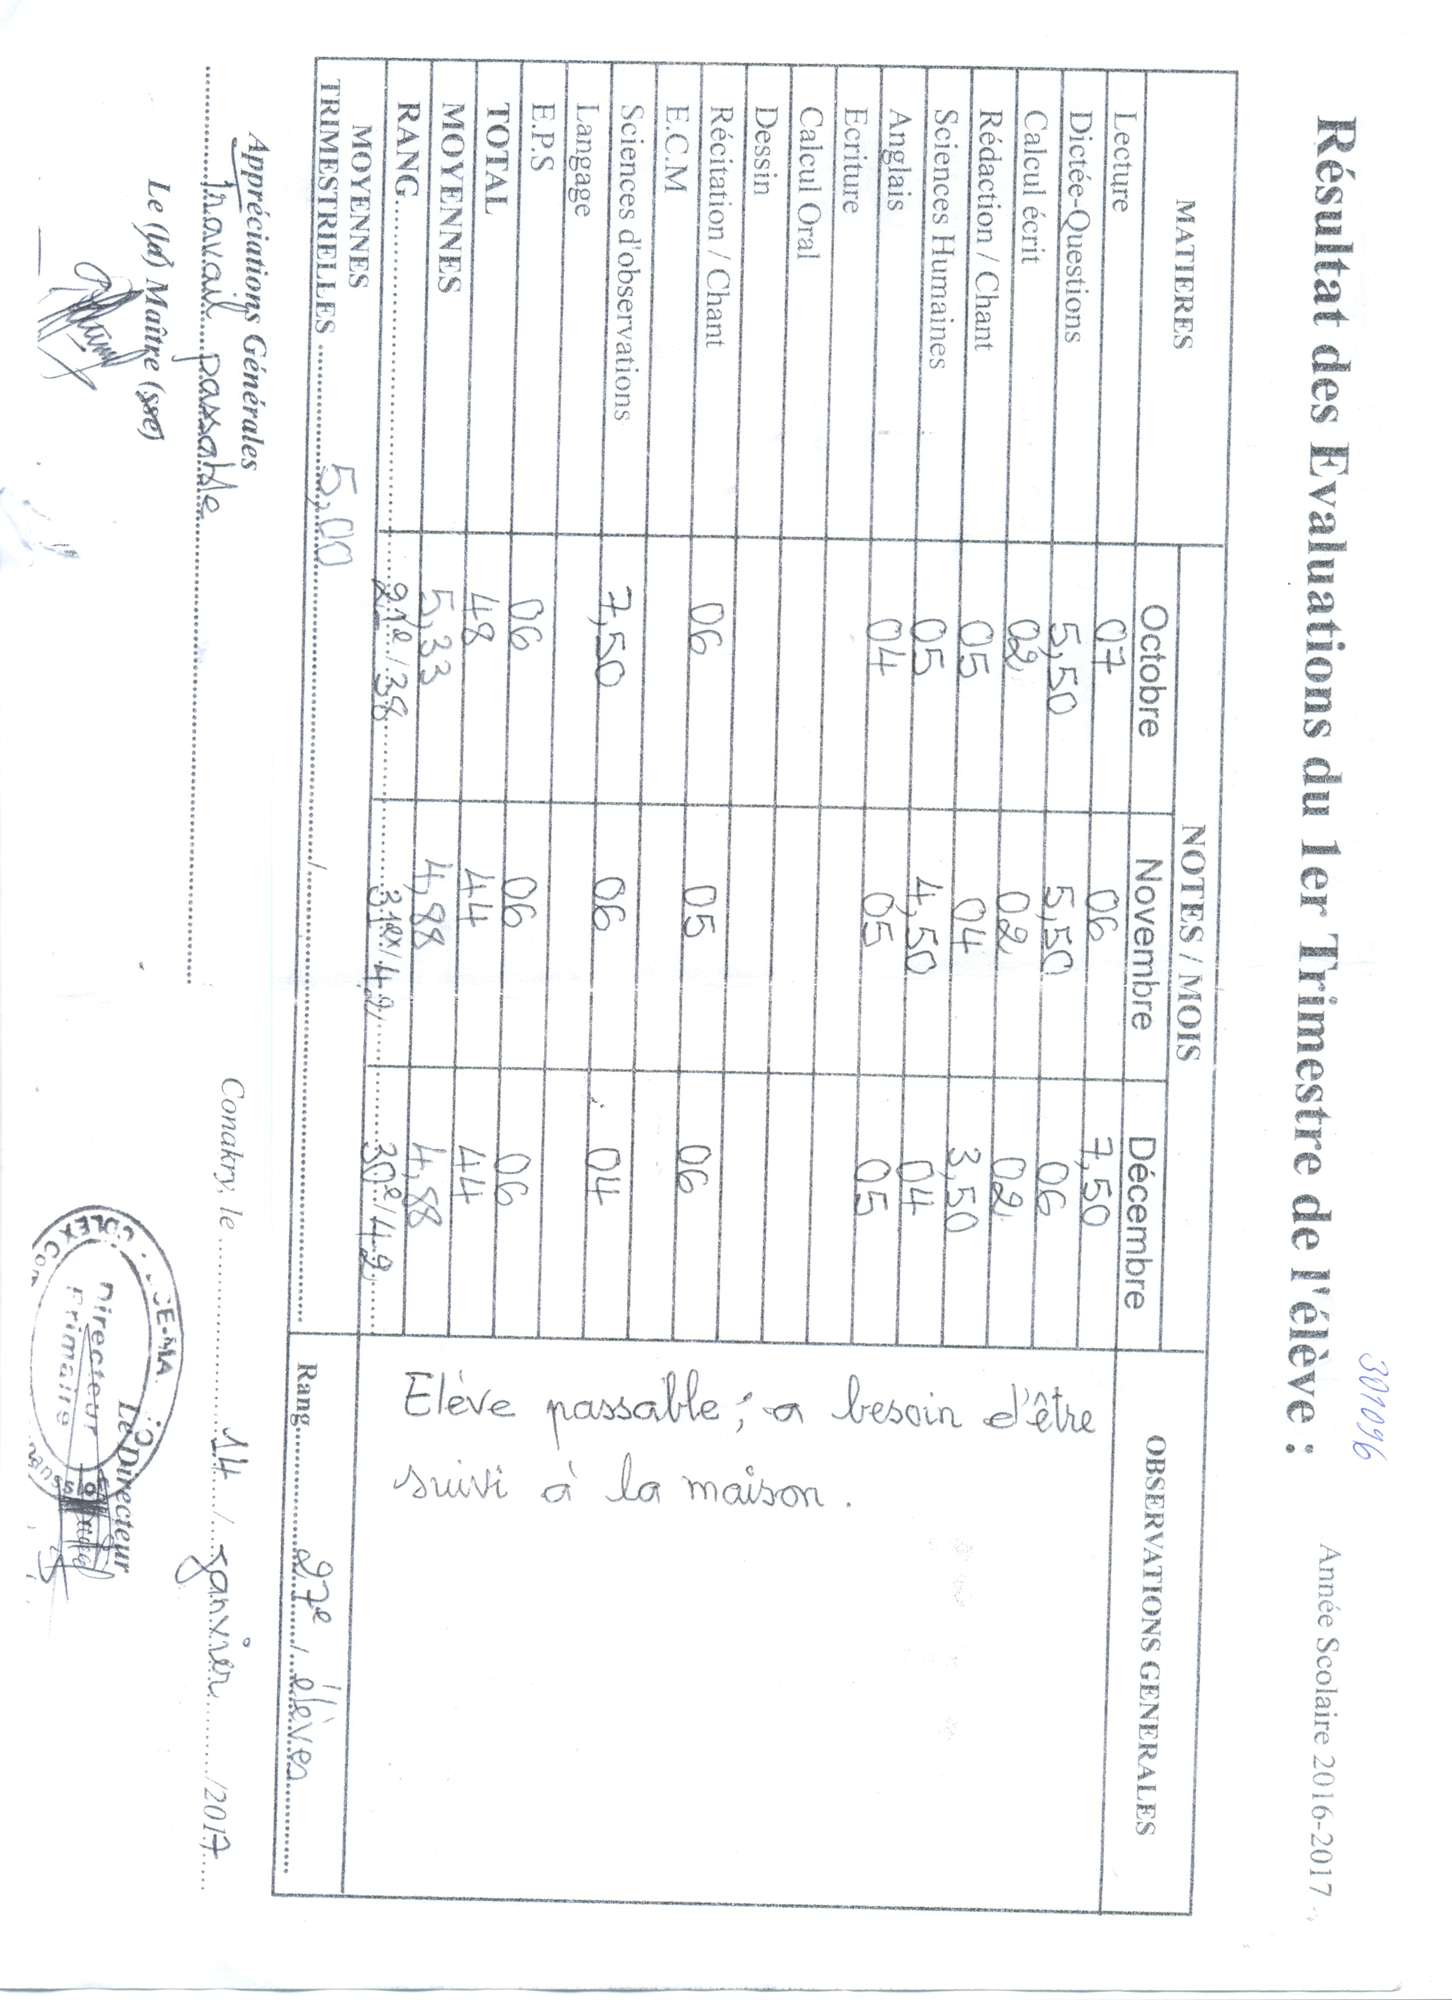 301096
Résultat des Evaluations du 1er Trimestre de l'élève :
Année Scolaire 2016-2017
MATIERES NOTES / MOIS OBSERVATIONS GENERALES
Octobre Novembre Décembre
Lecture 07 06 7,50
Dictée-Questions 5,50 5,50 06
Calcul écrit 02 02 02
Rédaction / Chant 05 04 3,50
Sciences Humaines 05 4,50 04
Anglais 04 05 05
Ecriture
Calcul Oral
Dessin
Récitation / Chant 06 05 06
E.C.M
Sciences d'observations 7,50 06 04
Langage
E.P.S 06 06 06
TOTAL 48 44 44
MOYENNES 5,33 4,88 4,88
RANG 21e/38 31ex/42 30e/42
Elève passable; a besoin d'être
suivi à la maison.
MOYENNES
TRIMESTRIELLES 5,00 / Rang 27e / élèves
Appréciations Générales
Travail passable
Conakry, le 14 / Janvier /2017
Le (la) Maître (sse)
Le Directeur
Directeur
Primaire